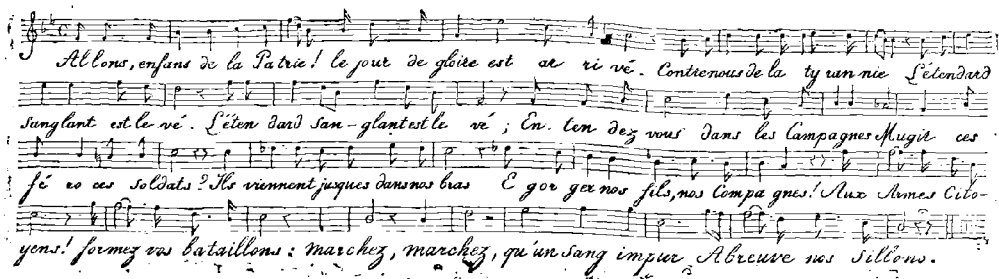 Allons, enfans de la Patrie! le jour de gloire est ar ri vé. Contre nous de la ty ran nie L'étendard
sanglant est le vé. L'éten dard san-glant est le vé; En. ten dez vous dans les Campagnes Mugir ces
fé ro ces soldats? Ils viennent jusques dans nos bras E gor ger nos fils, nos Compa gnes! Aux Armes Cito-
yens! formez vos bataillons: marchez, marchez, qu'un Sang impur Abreuve nos Sillons.